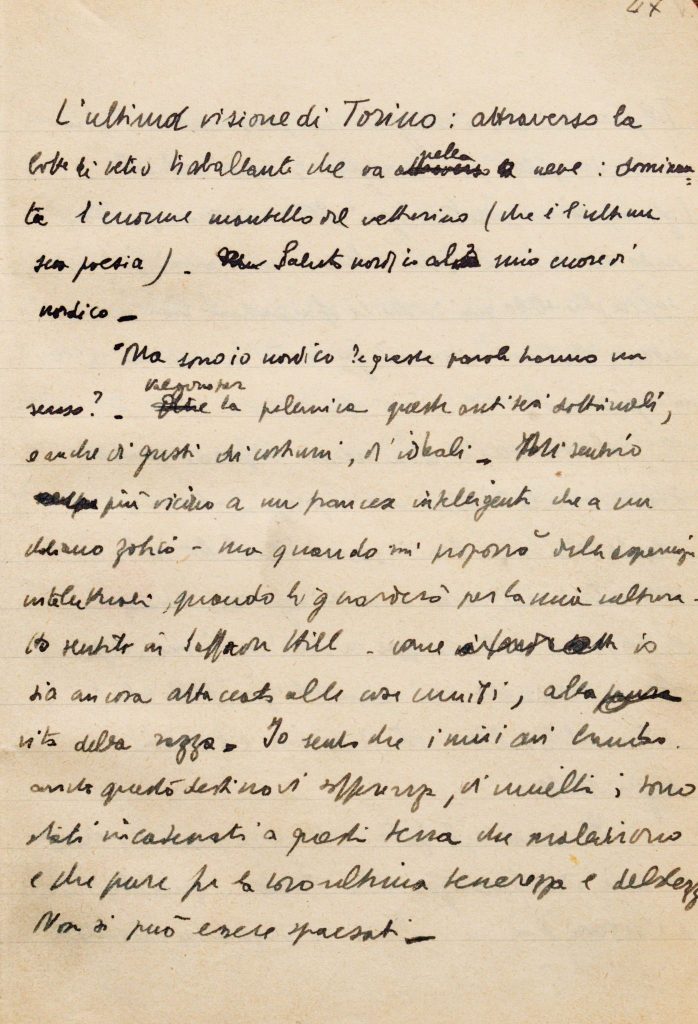 47
L'ultima visione di Torino: attraverso la
botte di vetro traballante che va attraverso nella neve: domina
ta l'enorme mantello del vetturino (che è l'ultima
sua poesia). Saluto nordico al mio cuore di
nordico –
Ma sono io nordico? e queste parole hanno un
senso? – Valgono per la polemica queste antitesi dottrinali,
e anche di gusti di costumi, d'ideali – Mi sentirò
più vicino a un francese intelligente che a un
italiano zotico – ma quando mi proporrò delle esperienze
intellettuali, quando li guarderò per la mia cultura –
Ho sentito in Saffron Hill – come io
sia ancora attaccato alle cose umili, alla
vita della razza. Io sento che i miei avi hanno
avuto questo destino di sofferenza, di umiltà; sono
stati incatenati a questa terra che maledirono
e che pure fu la loro ultima tenerezza e debolezza
Non si può essere spaesati –